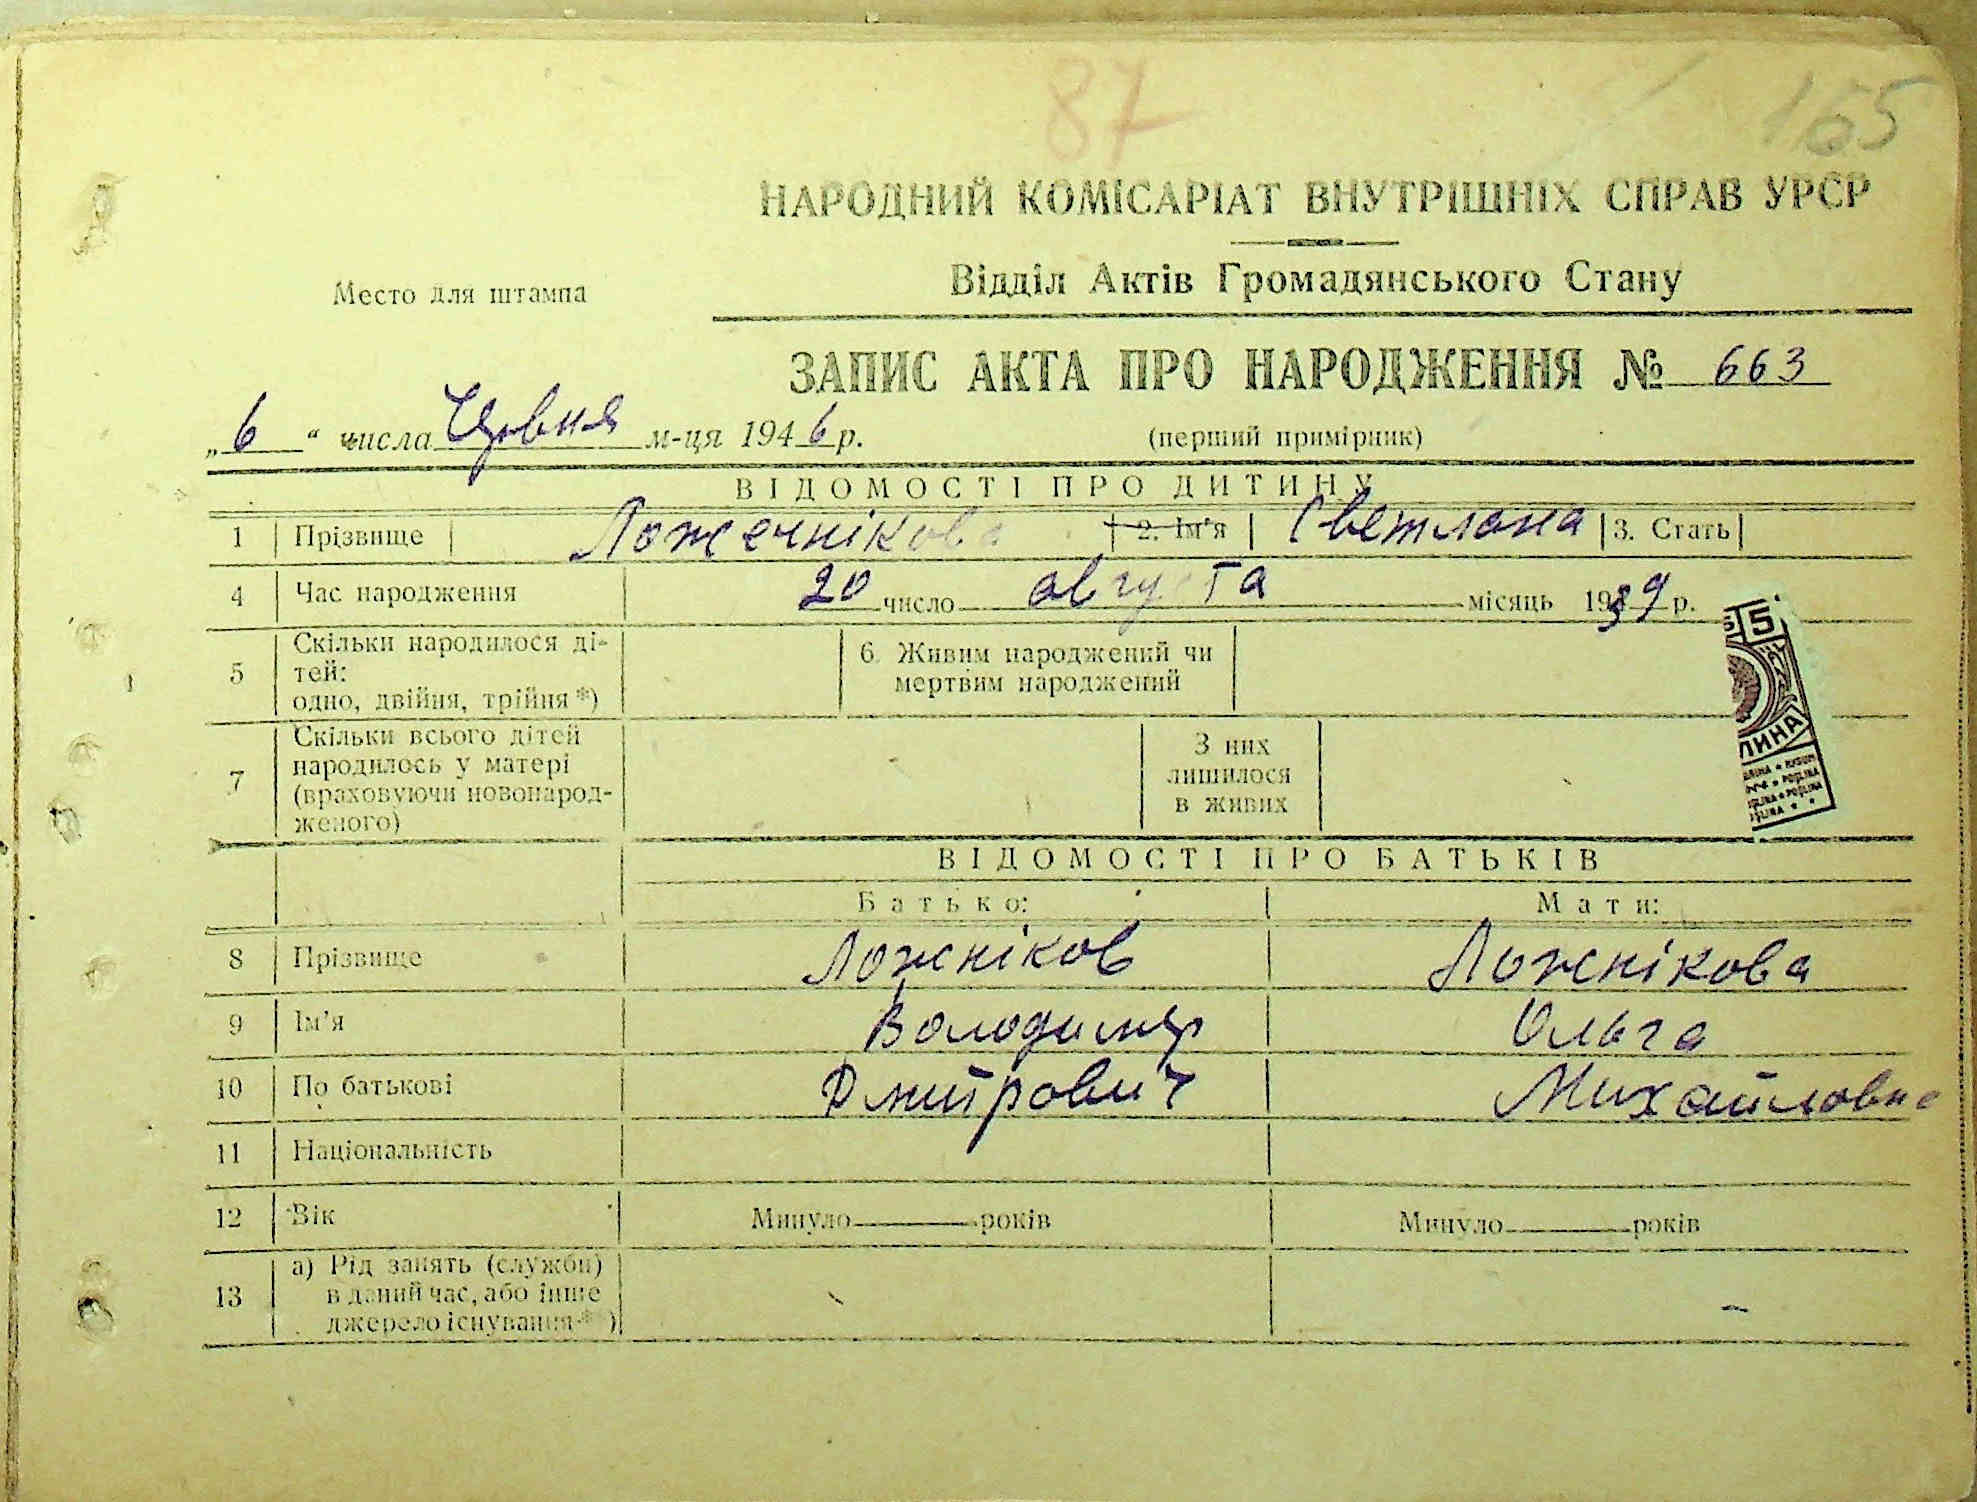 87
165
НАРОДНИЙ КОМІСАРІАТ ВНУТРІШНІХ СПРАВ УРСР
Відділ Актів Громадянського Стану
Место для штампа
ЗАПИС АКТА ПРО НАРОДЖЕННЯ № 663
„6“ числа Червня м-ця 1946 р.
(перший примірник)
ВІДОМОСТІ ПРО ДИТИНУ
1 Прізвище Ложечнікова 2. Ім'я Светлана 3. Стать
4 Час народження 20 число августа місяць 1939 р.
5 Скільки народилося ді-
тей:
одно, двійня, трійня *)
6. Живим народжений чи
мертвим народжений
7 Скільки всього дітей
народилось у матері
(враховуючи новонарод-
женого)
З них
лишилося
в живих
5 5
ЛИНА
ВІДОМОСТІ ПРО БАТЬКІВ
Батько: Мати:
8 Прізвище Ложніков Ложнікова
9 Ім'я Володимир Ольга
10 По батькові Дмитрович Михайловна
11 Національність
12 Вік Минуло років Минуло років
13 а) Рід занять (служби)
в даний час, або інше
джерело існування * )